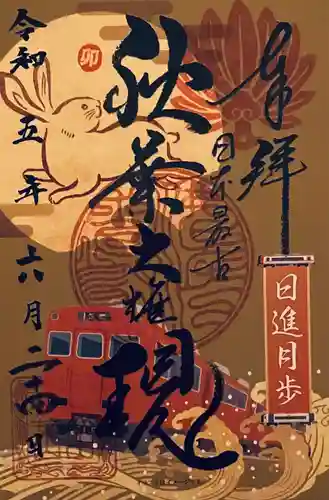 奉拝
日進月歩
日本最古
秋葉大権現
卯
令和五年六月二十四日